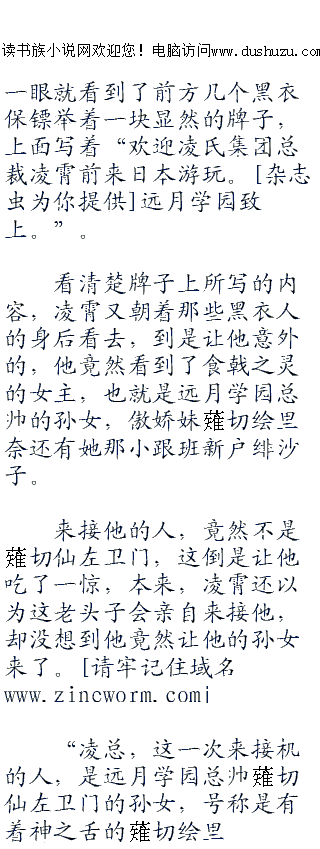 读书族小说网欢迎您！电脑访问www.dushuzu.com
一眼就看到了前方几个黑衣
保镖举着一块显然的牌子，
上面写着“欢迎凌氏集团总
裁凌霄前来日本游玩。[杂志
虫为你提供]远月学园致
上。”。
看清楚牌子上所写的内
容，凌霄又朝着那些黑衣人
的身后看去，到是让他意外
的，他竟然看到了食戟之灵
的女主，也就是远月学园总
帅的孙女，傲娇妹薙切绘里
奈还有她那小跟班新户绯沙
子。
来接他的人，竟然不是
薙切仙左卫门，这倒是让他
吃了一惊，本来，凌霄还以
为这老头子会亲自来接他，
却没想到他竟然让他的孙女
来了。[请牢记住域名
www.zincworm.com|
“凌总，这一次来接机
的人，是远月学园总帅薙切
仙左卫门的孙女，号称是有
着神之舌的薙切绘里